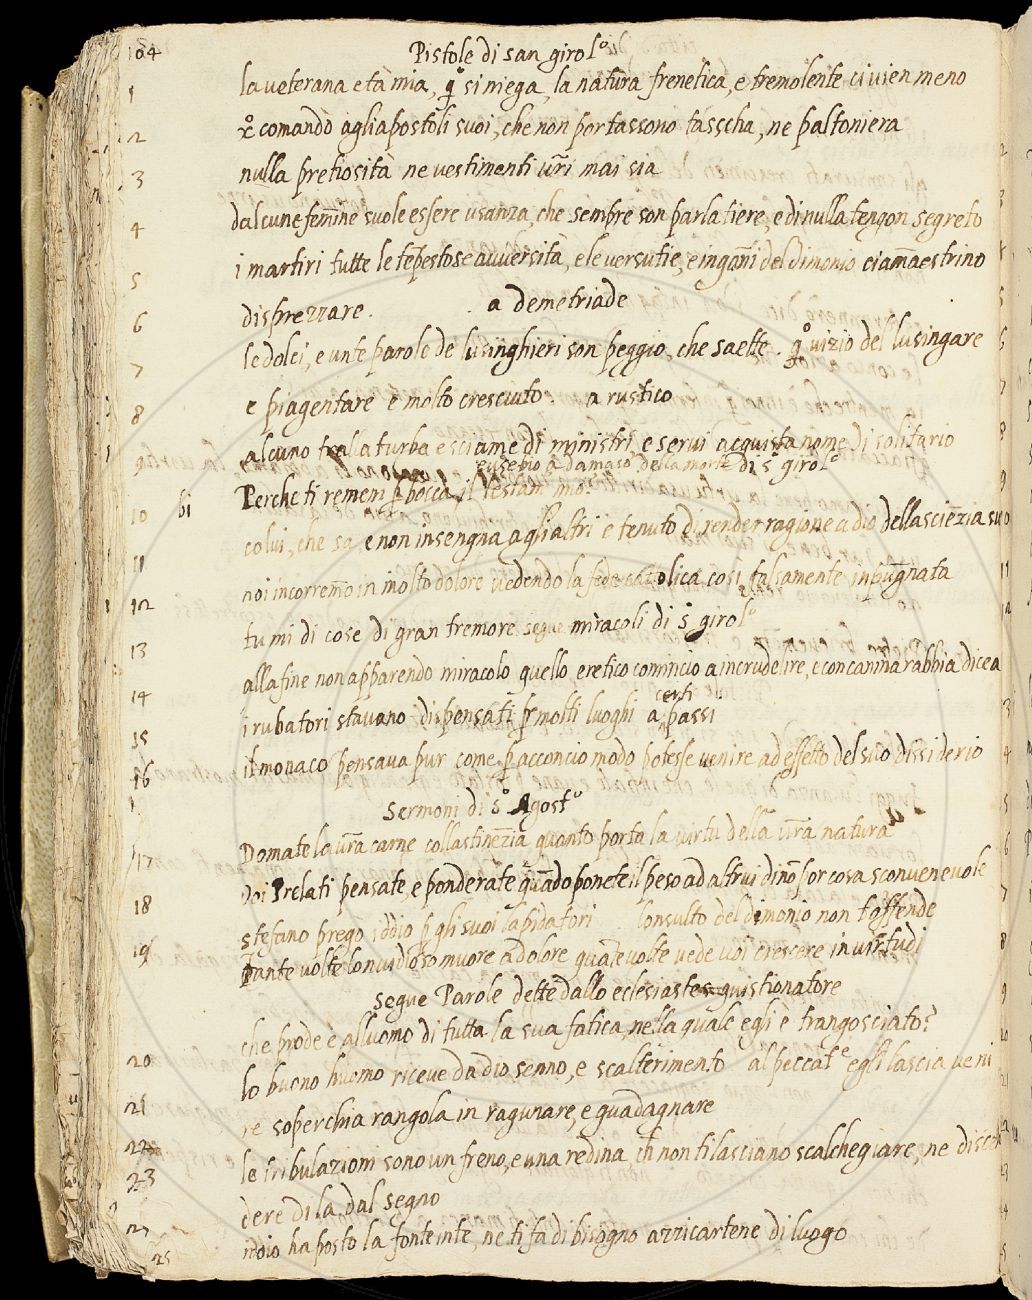 104 Pistole di san girol.º
1 la veterana età mia, q̊ si niega, la natura frenetica, e tremolente ci vien meno
2 x̊ comandò agli apostoli suoi, che non portassono tasscha, ne paltoniera
3 nulla pretiosità ne vestimenti vr̃i mai sia
4 dalcune femine suole essere usanza, che sempre son parlatiere, e di nulla tengon segreto
5 i martiri tutte le tẽpestose avversità, e le versutie, e ingañi del dimonio ci amaestrino
6 disprezzare. a demetriade
7 le dolci, e unte parole de lusinghieri son peggio, che saette. q̊ vizio del lusingare
8 e piagentare è molto cresciuto. a rustico
9 alcuno tralla turba e sciame di ministri, e servi acquista nome di solitario
eusebio a damaso della morte di s. girol.º
10 bi Perche ti remeri
colui, che sa e non insengna agli altri è tenuto di render ragione a dio della sciẽzia su
11 noi incorremo in molto dolore vedendo la fede catolica cosi falsamente inpugnata
12 tu mi di cose di gran tremore segue miracoli di s. girol.º
13 alla fine non apparendo miracolo quello eretico comincio a incrudelire, e con canina rabbia dicea
certi
14 i rubatori stavano dispensati p̱ molti luoghi a passi
15 il monaco pensava pur come p̱ acconcio modo potesse venire ad effetto del suo dissiderio
16 Sermoni di s.º Agost.º
Domate la vr̃a carne coll astinẽzia quanto porta la virtu della vr̃a natura
17 Voi Prelati pensate, e ponderate quãdo ponete il peso ad altrui di nõ for cosa sconvenevole
18 stefano prego iddio p̱ gli suoi lapidatori Consulto del dimonio non t offende
19 Tante volte lo nvidioso muore a dolore quãte volte vede voi crescere in virtudi
Segue Parole dette dallo eclesiastes quistionatore
che prode è all uomo di tutta la sua fatica, nella quale egli è trangosciato?
20 lo buono huomo riceve da dio senno, e scalterimento al peccat.e egli lascia veni
21 re soperchia rangola in ragunare, e guadagnare
22 le tribulazioni sono un freno, e una redina ch̃ non ti lasciano scalchegiare, ne discen
23 dere di la dal segno
24 iddio ha posto la fonte in te, ne ti fa di bisogno azzicartene di luogo
25